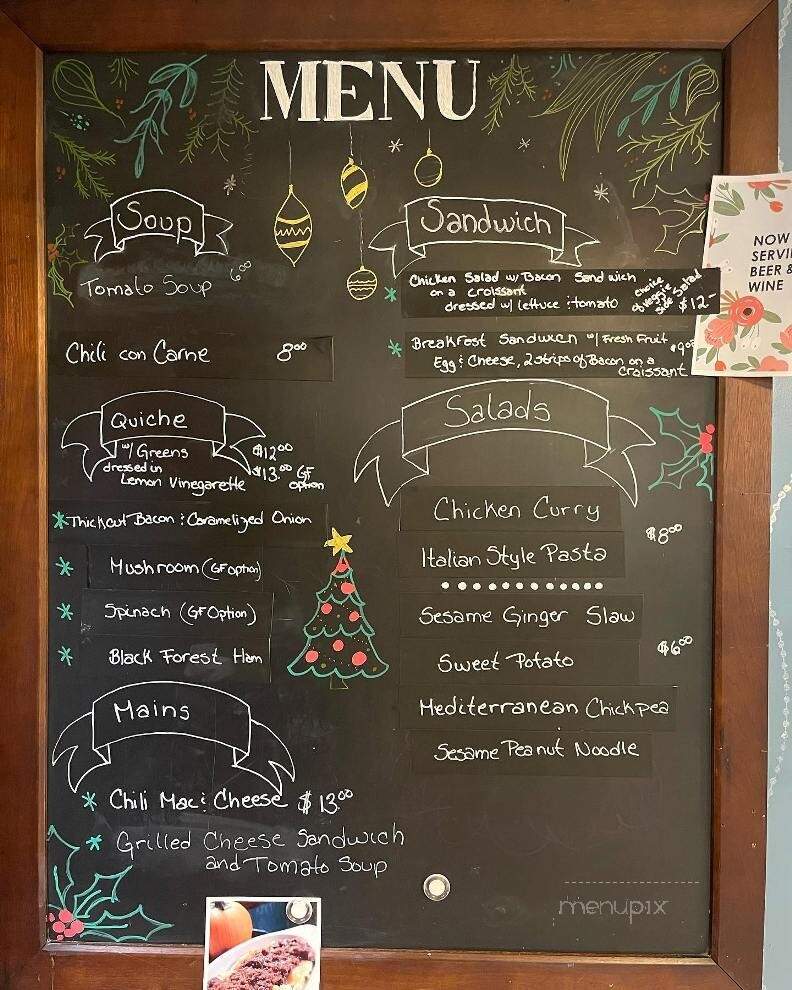 MENU
Soup
Tomato Soup 6.00
Chili con Carne 8.00
Quiche
w/ Greens $12.00
dressed in $13.00 GF
Lemon Vinegarette option
*Thickcut Bacon & Caramelized Onion
* Mushroom (GF option)
* Spinach (GF Option)
* Black Forest Ham
Mains
* Chili Mac & Cheese $13.00
* Grilled Cheese Sandwich
and Tomato Soup
Sandwich
* Chicken Salad w/ Bacon Sandwich
on a croissant
dressed w/ lettuce & tomato
choice
of veggie
side salad
$12-
* Breakfast Sandwich w/ Fresh Fruit $9.00
Egg & Cheese, 2 strips of Bacon on a
croissant
Salads
Chicken Curry
$8.00
Italian Style Pasta
Sesame Ginger Slaw
$6.00
Sweet Potato
Mediterranean Chickpea
Sesame Peanut Noodle
NOW
SERVI
BEER &
WINE
menupix